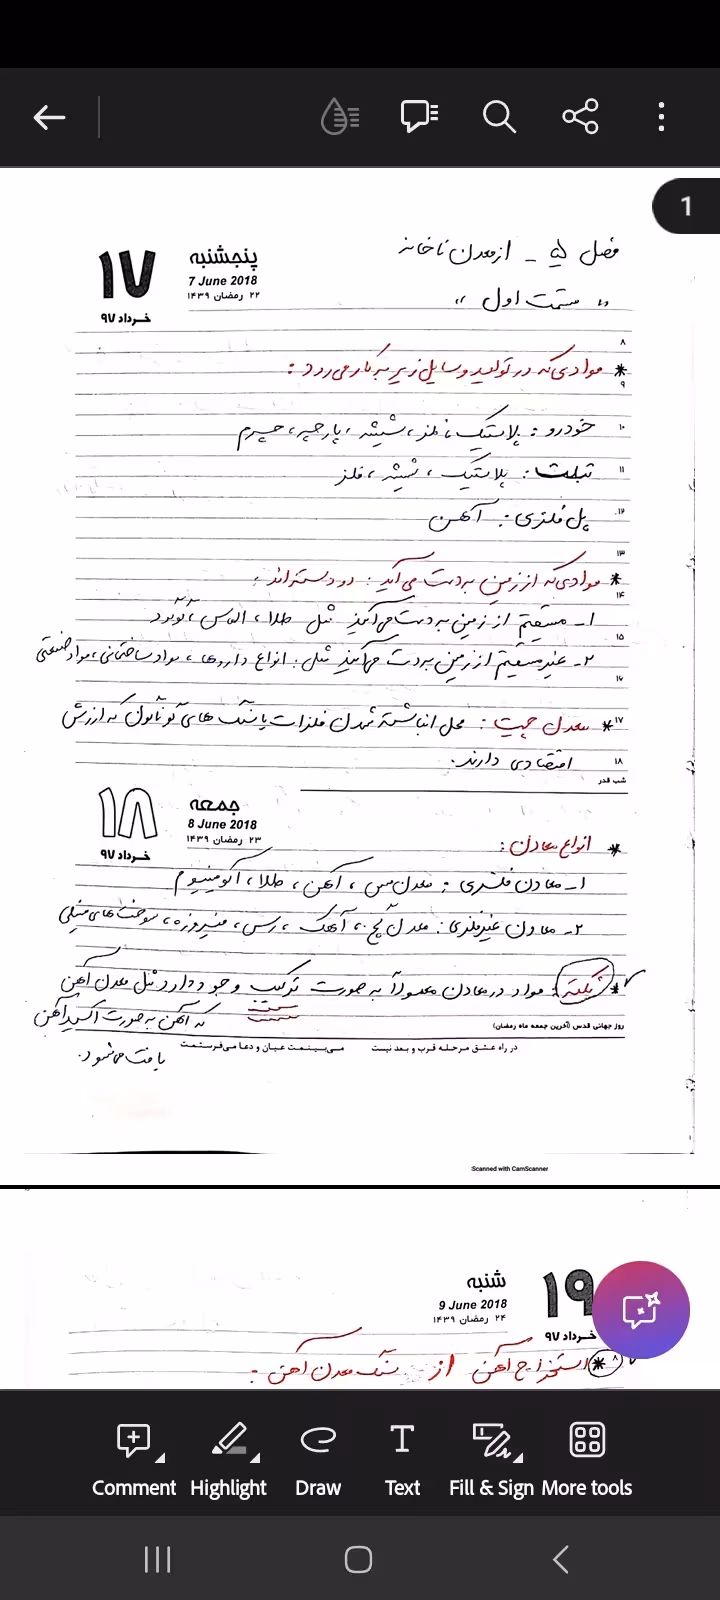 1
فصل ۵ - از معدن تا خانه
۱۷
پنجشنبه
7 June 2018
۲۲ رمضان ۱۴۳۹
خـرداد ۹۷
" قسمت اول "
۸
* موادی که در تولید وسایل زیر به کار می رود :
۹
۱۰
خودرو : پلاستیک، فلز، شیشه، پارچه، چرم
۱۱
تبلت : پلاستیک، شیشه، فلز
۱۲
پل فلزی : آهن
۱۳
* موادی که از زمین به دست می آید : دو دسته اند :
۱۴
۱- مستقیم از زمین به دست می آیند مثل طلا، الماس،
۱۵
۲- غیر مستقیم از زمین به دست می آیند مثل : انواع داروها، مواد ساختمانی، مواد صنعتی
۱۶
۱۷
* معدن چیست : محل انباشته شدن فلزات یا سنگ های گوناگون که ارزش
۱۸
اقتصادی دارند.
شب قدر
۱۸
جمعه
8 June 2018
۲۳ رمضان ۱۴۳۹
خـرداد ۹۷
* انواع معادن :
۱- معادن فلزی : معدن مس، آهن، طلا، آلومینیوم
۲- معادن غیرفلزی : معدن گچ، آهک، رس، فیروزه، سوخت های فسیلی
* نکته : مواد در معادن معمولاً به صورت ترکیب وجود دارد مثل معدن آهن
که آهن به صورت اکسید آهن
روز جهانی قدس (آخرین جمعه ماه رمضان)
یافت می شود.
در راه عشق مرحله قرب و بعد نیست می‌بینمت عیان و دعا می‌فرستمت
Scanned with CamScanner
۱۹
شنبه
9 June 2018
۲۴ رمضان ۱۴۳۹
خـرداد ۹۷
۸
* استخراج آهن از سنگ معدن آهن :
Comment Highlight Draw Text Fill & Sign More tools